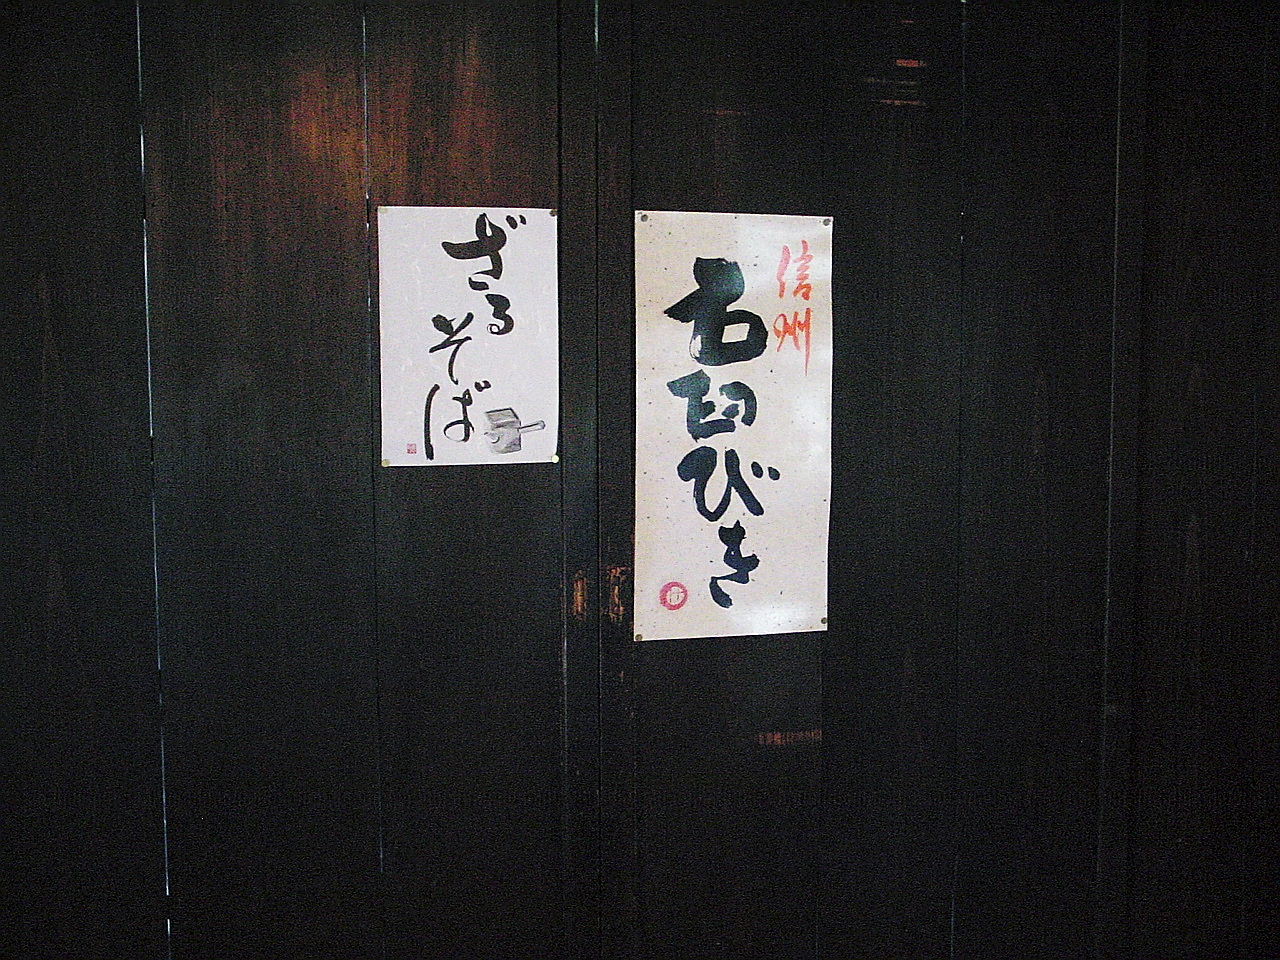 信州
石臼びき
ざるそば